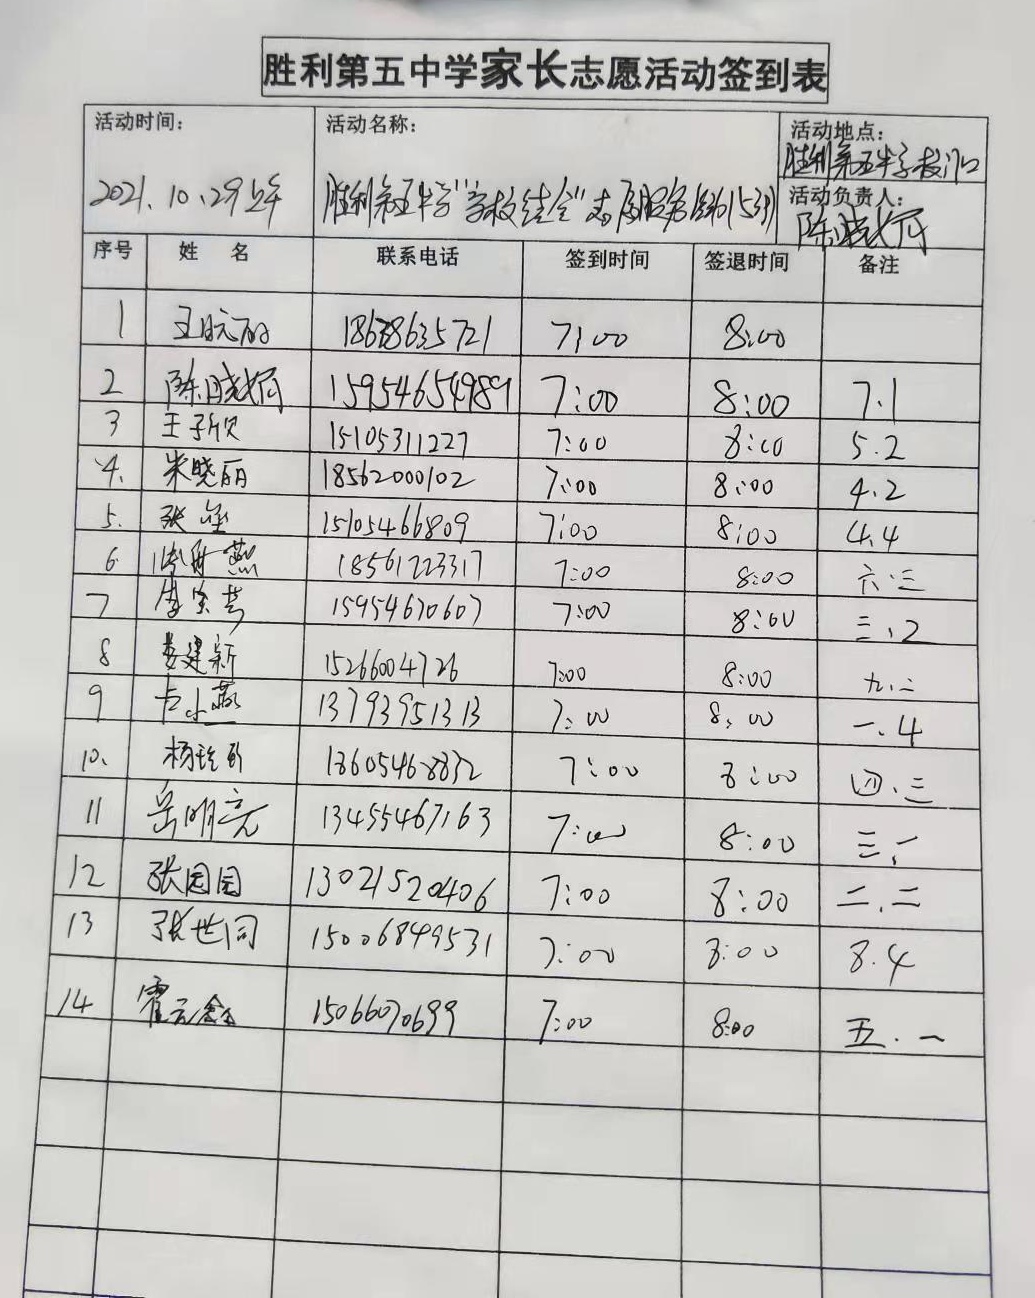 胜利第五中学家长志愿活动签到表
活动时间: 活动名称: 活动地点:
胜利第五中学校门口
2021.10.29上午 胜利第五中学"学校结合"志愿服务 活动负责人:
陈晓娟
序号 姓 名 联系电话 签到时间 签退时间 备注
1 王 丽 18678635721 7:00 8:00
2 陈晓娟 15954654989 7:00 8:00 7.1
3 王子欣 15105311227 7:00 8:00 5.2
4. 朱晓丽 18562000102 7:00 8:00 4.2
5. 张 15105466809 7:00 8:00 4.4
6. 燕 18561223317 7:00 8:00 六.三
7 李宝芳 15954670607 7:00 8:00 三.2
8 娄建新 15266004726 7:00 8:00 九.二
9 卢小燕 13793951313 7:00 8:00 一.4
10. 杨 13605468832 7:00 8:00 四.三
11 岳明亮 13455467163 7:00 8:00 三.一
12 张园园 13021520406 7:00 8:00 二.二
13 张世同 15006849531 7:00 8:00 8.4
14 霍云鑫 15066070699 7:00 8:00 五.一